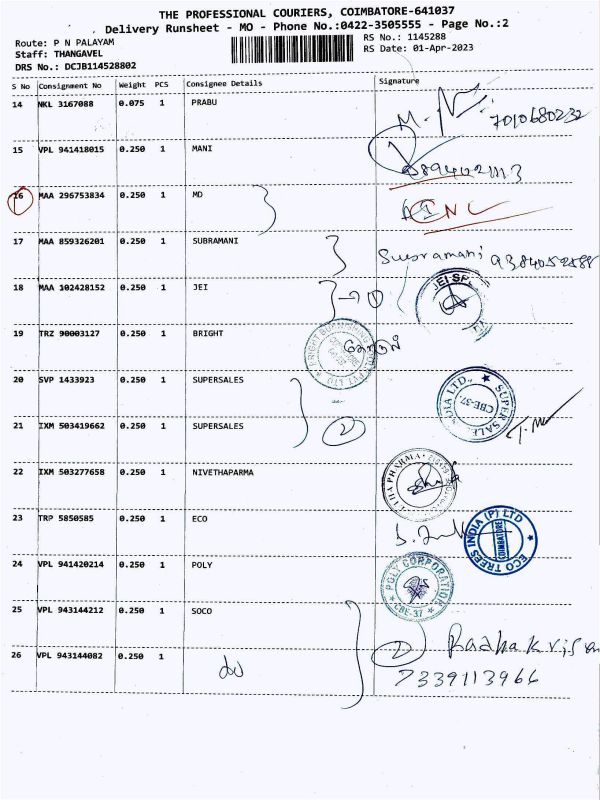 THE PROFESSIONAL COURIERS, COIMBATORE-641037
Delivery Runsheet - MO - Phone No.:0422-3505555 - Page No.:2
Route: P N PALAYAM
Staff: THANGAVEL
DRS No.: DCJB114528802
RS No.: 1145288
RS Date: 01-Apr-2023
S No Consignment No Weight PCS Consignee Details Signature
14 NKL 3167088 0.075 1 PRABU
7010680232
15 VPL 941418015 0.250 1 MANI
16 MAA 296753834 0.250 1 MD
17 MAA 859326201 0.250 1 SUBRAMANI
Subramani
18 MAA 102428152 0.250 1 JEI
19 TRZ 90003127 0.250 1 BRIGHT
20 SVP 1433923 0.250 1 SUPERSALES
SUPER SALE INDIA LTD., CBE-37.
21 IXM 503419662 0.250 1 SUPERSALES
2
22 IXM 503277658 0.250 1 NIVETHAPARMA
23 TRP 5850585 0.250 1 ECO
ECO TREES INDIA (P) LTD COIMBATORE
24 VPL 941420214 0.250 1 POLY
POLY CORPORATION CBE-37
25 VPL 943144212 0.250 1 SOCO
2 Radhakrisn
26 VPL 943144082 0.250 1 do
7339113966